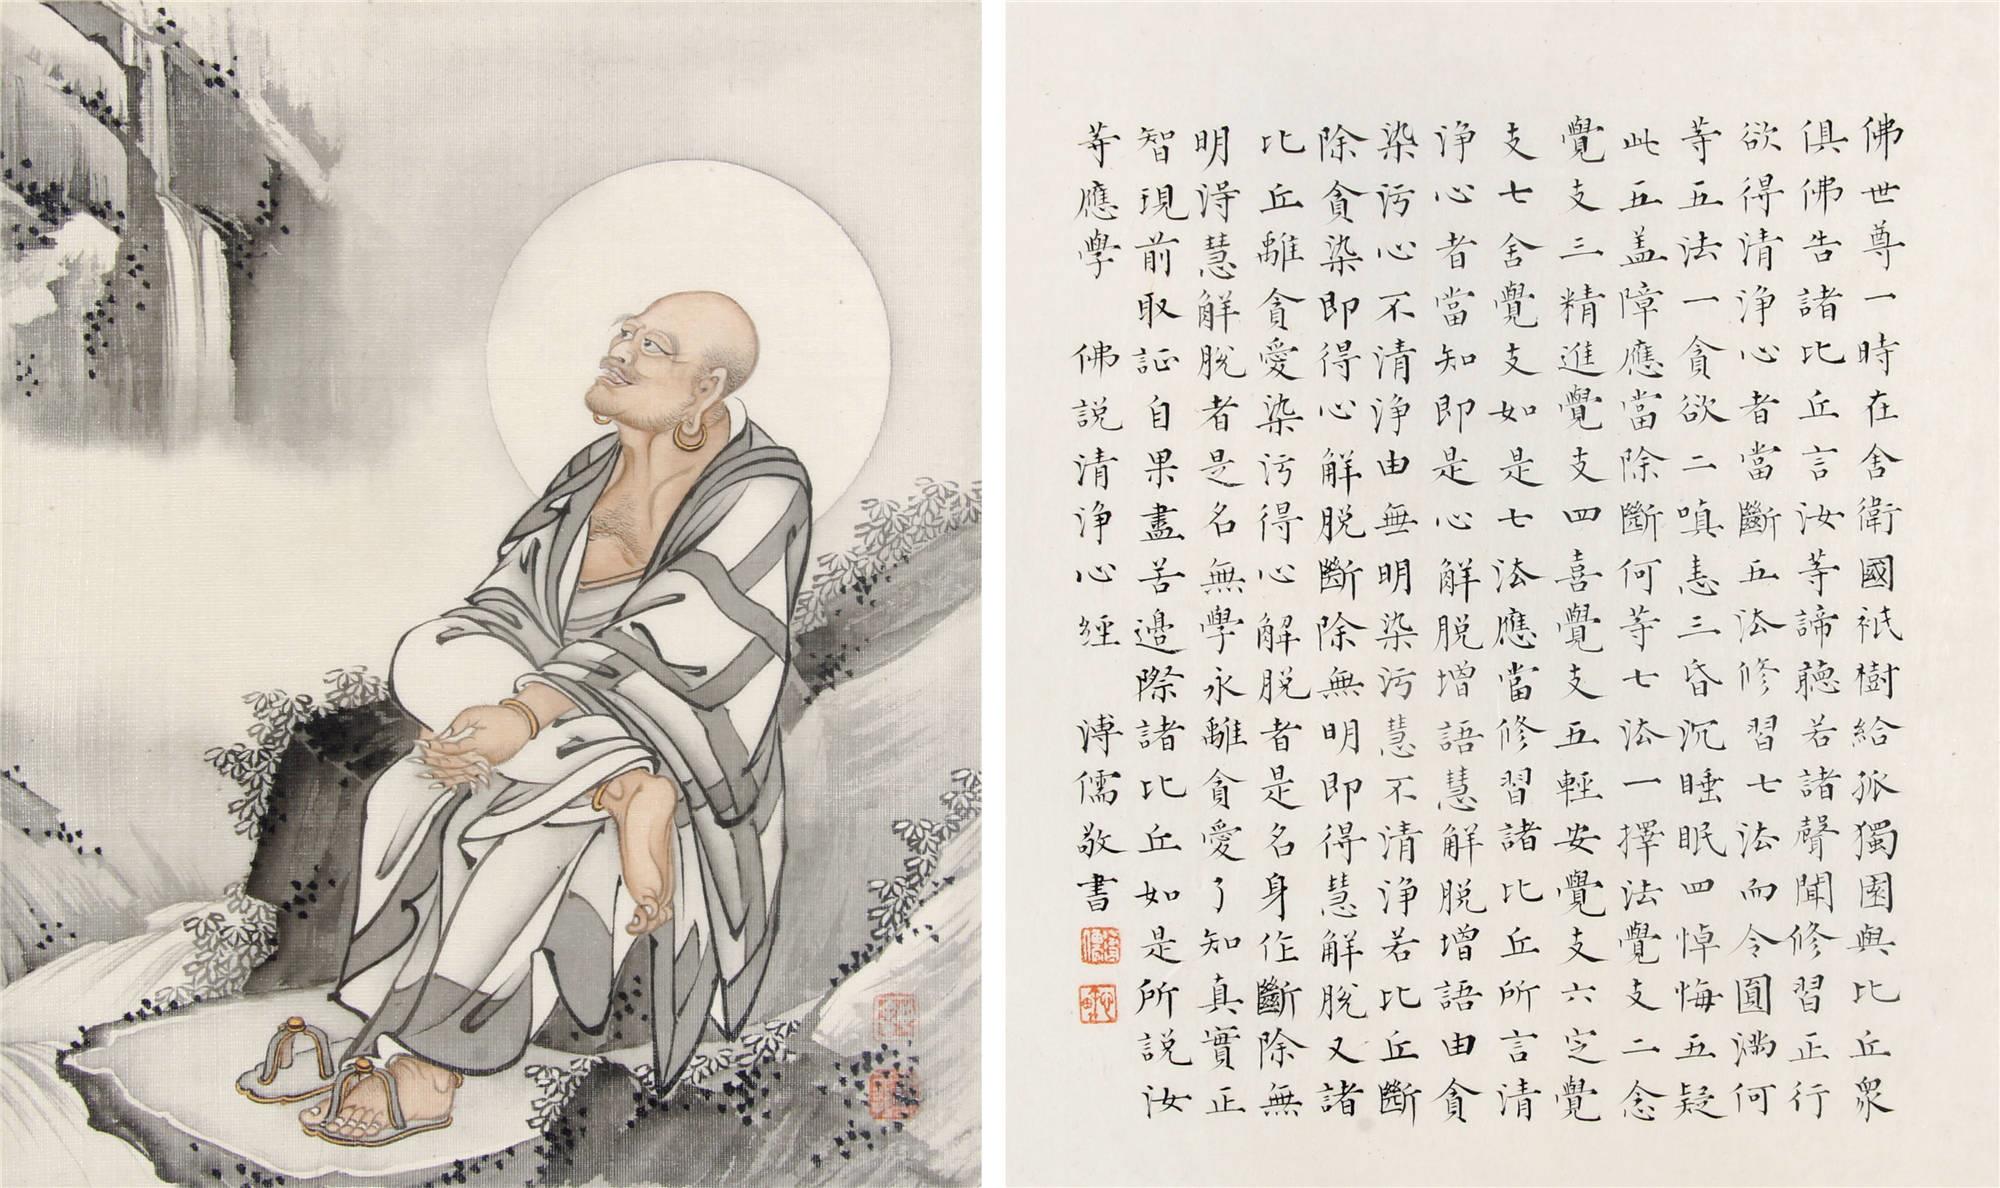 佛世尊一時在舍衛國祇樹給孤獨園與比丘衆
俱佛告諸比丘言汝等諦聽若諸聲聞修習正行
欲得清淨心者當斷五法修習七法而令圓滿何
等五法一貪欲二嗔恚三昏沉睡眠四悼悔五疑
此五盖障應當除斷何等七法一擇法覺支二念
覺支三精進覺支四喜覺支五輕安覺支六定覺
支七舍覺支如是七法應當修習諸比丘所言清
淨心者當知即是心解脱增語慧解脱增語由貪
染污心不清淨由無明染污慧不清淨若比丘斷
除貪染即得心解脱斷除無明即得慧解脱又諸
比丘離貪愛染污得心解脱者是名身作斷除無
明得慧解脱者是名無學永離貪愛了知真實正
智現前取証自果盡苦邊際諸比丘如是所説汝
等應學 佛説清淨心經 溥儒敬書
溥儒